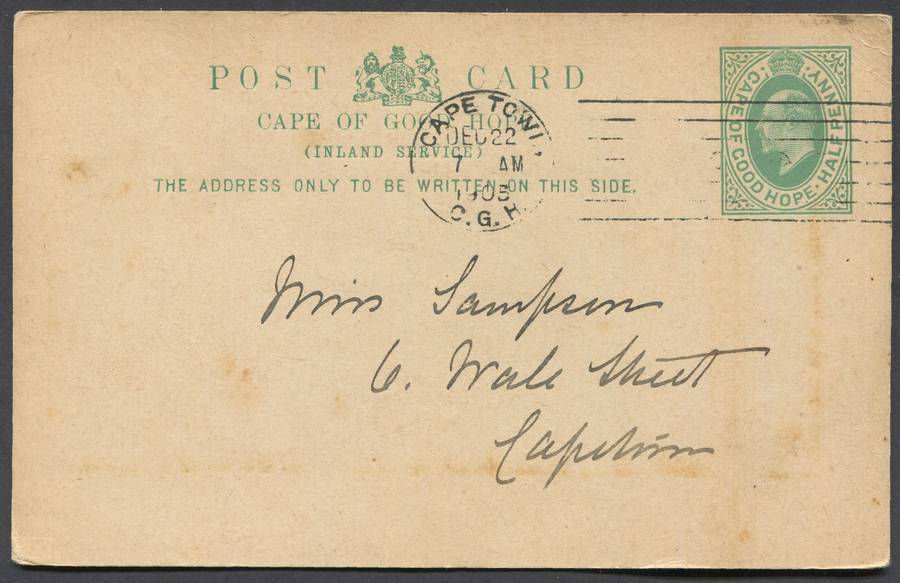 POST CARD
CAPE OF GOOD HOPE
(INLAND SERVICE)
THE ADDRESS ONLY TO BE WRITTEN ON THIS SIDE.
CAPE TOWN
DEC 22
7 AM
1903
C.G.H
CAPE OF GOOD HOPE · HALFPENNY ·
Miss Sampson
6. Wale Street
Capetown